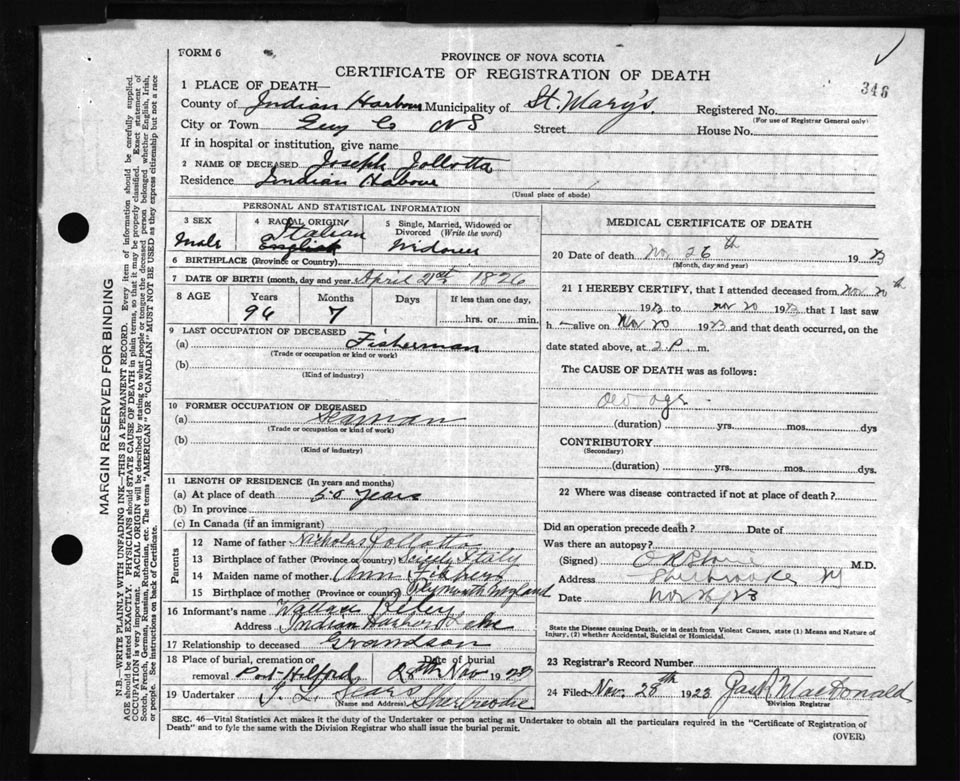 FORM 6
PROVINCE OF NOVA SCOTIA
CERTIFICATE OF REGISTRATION OF DEATH
346
1 PLACE OF DEATH—
County of Indian Harbour Municipality of St. Mary's Registered No.
(For use of Registrar General only)
City or Town Guy Co NS Street House No.
If in hospital or institution, give name
2 NAME OF DECEASED Joseph Jollotta
Residence Indian Habour
(Usual place of abode)
PERSONAL AND STATISTICAL INFORMATION
3 SEX
Male
4 RACIAL ORIGIN
Italian
English
5 Single, Married, Widowed or Divorced (Write the word)
Widower
6 BIRTHPLACE (Province or Country)
7 DATE OF BIRTH (month, day and year) April 21st 1826
8 AGE Years Months Days If less than one day,
96 7 hrs. or min.
9 LAST OCCUPATION OF DECEASED
(a) Fisherman
(Trade or occupation or kind or work)
(b)
(Kind of industry)
10 FORMER OCCUPATION OF DECEASED
(a) Seaman
(Trade or occupation or kind of work)
(b)
(Kind of industry)
11 LENGTH OF RESIDENCE (In years and months)
(a) At place of death 50 years
(b) In province
(c) In Canada (if an immigrant)
Parents
12 Name of father Nicholas Jollotta
13 Birthplace of father (Province or country) Italy
14 Maiden name of mother Ann
15 Birthplace of mother (Province or country) Plymouth England
16 Informant's name Wallace
Address Indian Harbor Lake
17 Relationship to deceased Grandson
18 Place of burial, cremation or removal Port Hilford Date of burial 28th Nov 1923
19 Undertaker Sherbrooke
(Name and Address)
MEDICAL CERTIFICATE OF DEATH
20 Date of death Nov 26th 1923
(Month, day and year)
21 I HEREBY CERTIFY, that I attended deceased from Nov 20th
1923 to Nov 20 1923 that I last saw
h alive on Nov 20 1923 and that death occurred, on the
date stated above, at 2 P. m.
The CAUSE OF DEATH was as follows:
Old age
(duration) yrs. mos. dys
CONTRIBUTORY
(Secondary)
(duration) yrs. mos. dys.
22 Where was disease contracted if not at place of death?
Did an operation precede death? Date of
Was there an autopsy?
(Signed) M.D.
Address Sherbrooke
Date Nov 26/23
State the Disease causing Death, or in death from Violent Causes, state (1) Means and Nature of Injury, (2) whether Accidental, Suicidal or Homicidal.
23 Registrar's Record Number
24 Filed Nov. 28th 1923 MacDonald
Division Registrar
SEC. 46—Vital Statistics Act makes it duty of the Undertaker or person acting as Undertaker to obtain all the particulars required in the "Certificate of Registration of
Death" and to fyle the same with the Division Registrar who shall issue the burial permit.
(OVER)
MARGIN RESERVED FOR BINDING
N.B.—WRITE PLAINLY WITH UNFADING INK—THIS IS A PERMANENT RECORD. Every item of information should be carefully supplied.
AGE should be stated EXACTLY. PHYSICIANS should STATE CAUSE OF DEATH in plain terms, so that it may be properly classified. Exact statement of
OCCUPATION is very important. RACIAL ORIGIN will be described by stating to what people or tongue the deceased person belonged whether English, Irish,
Scotch, French, German, Russian, Ruthenian, etc. The terms "AMERICAN" OR "CANADIAN" MUST NOT BE USED as they express citizenship but not a race
or people. See instructions on back of Certificate.